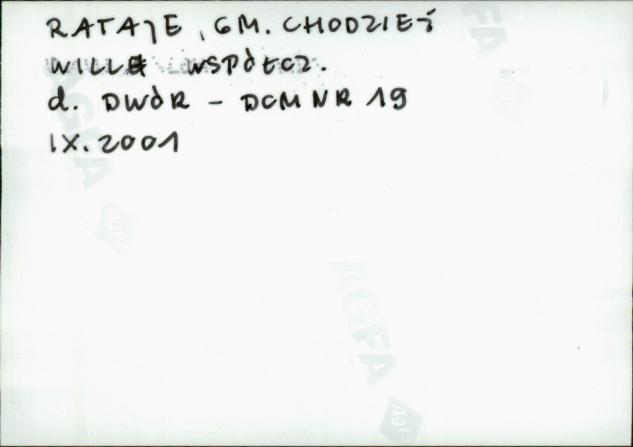 RATAJE, GM. CHODZIEŻ
WILLE WSPÓŁCZ.
d. DWÓR - DOM NR 19
IX. 2001
AGFA
AGFA
AGFA